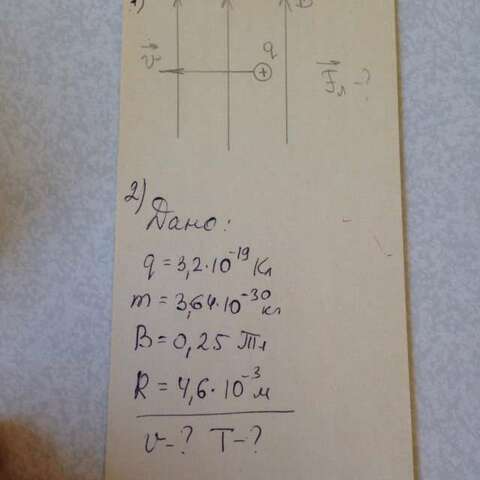 1)
B
q
v
+
Fл-?
2)
Дано:
q = 3,2·10⁻¹⁹ Кл
m = 3,64·10⁻³⁰ кл
B = 0,25 Тл
R = 4,6·10⁻³ м
v-? T-?